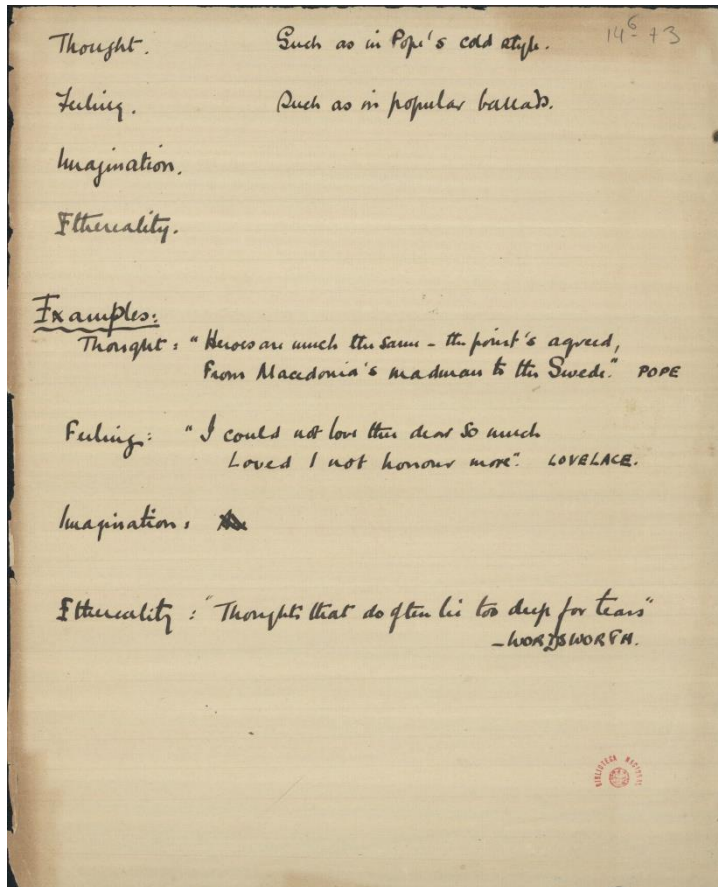 14⁶-73
Thought. Such as in Pope's cold style.
Feeling. Such as in popular ballads.
Imagination.
Ethereality.
Examples:
Thought: "Heroes are much the same – the point's agreed,
From Macedonia's madman to the Swede." POPE
Feeling: "I could not love thee dear so much
Loved I not honour more". LOVELACE.
Imagination:
Ethereality: "Thoughts that do often lie too deep for tears"
– WORDSWORTH.
BIBLIOTECA NACIONAL